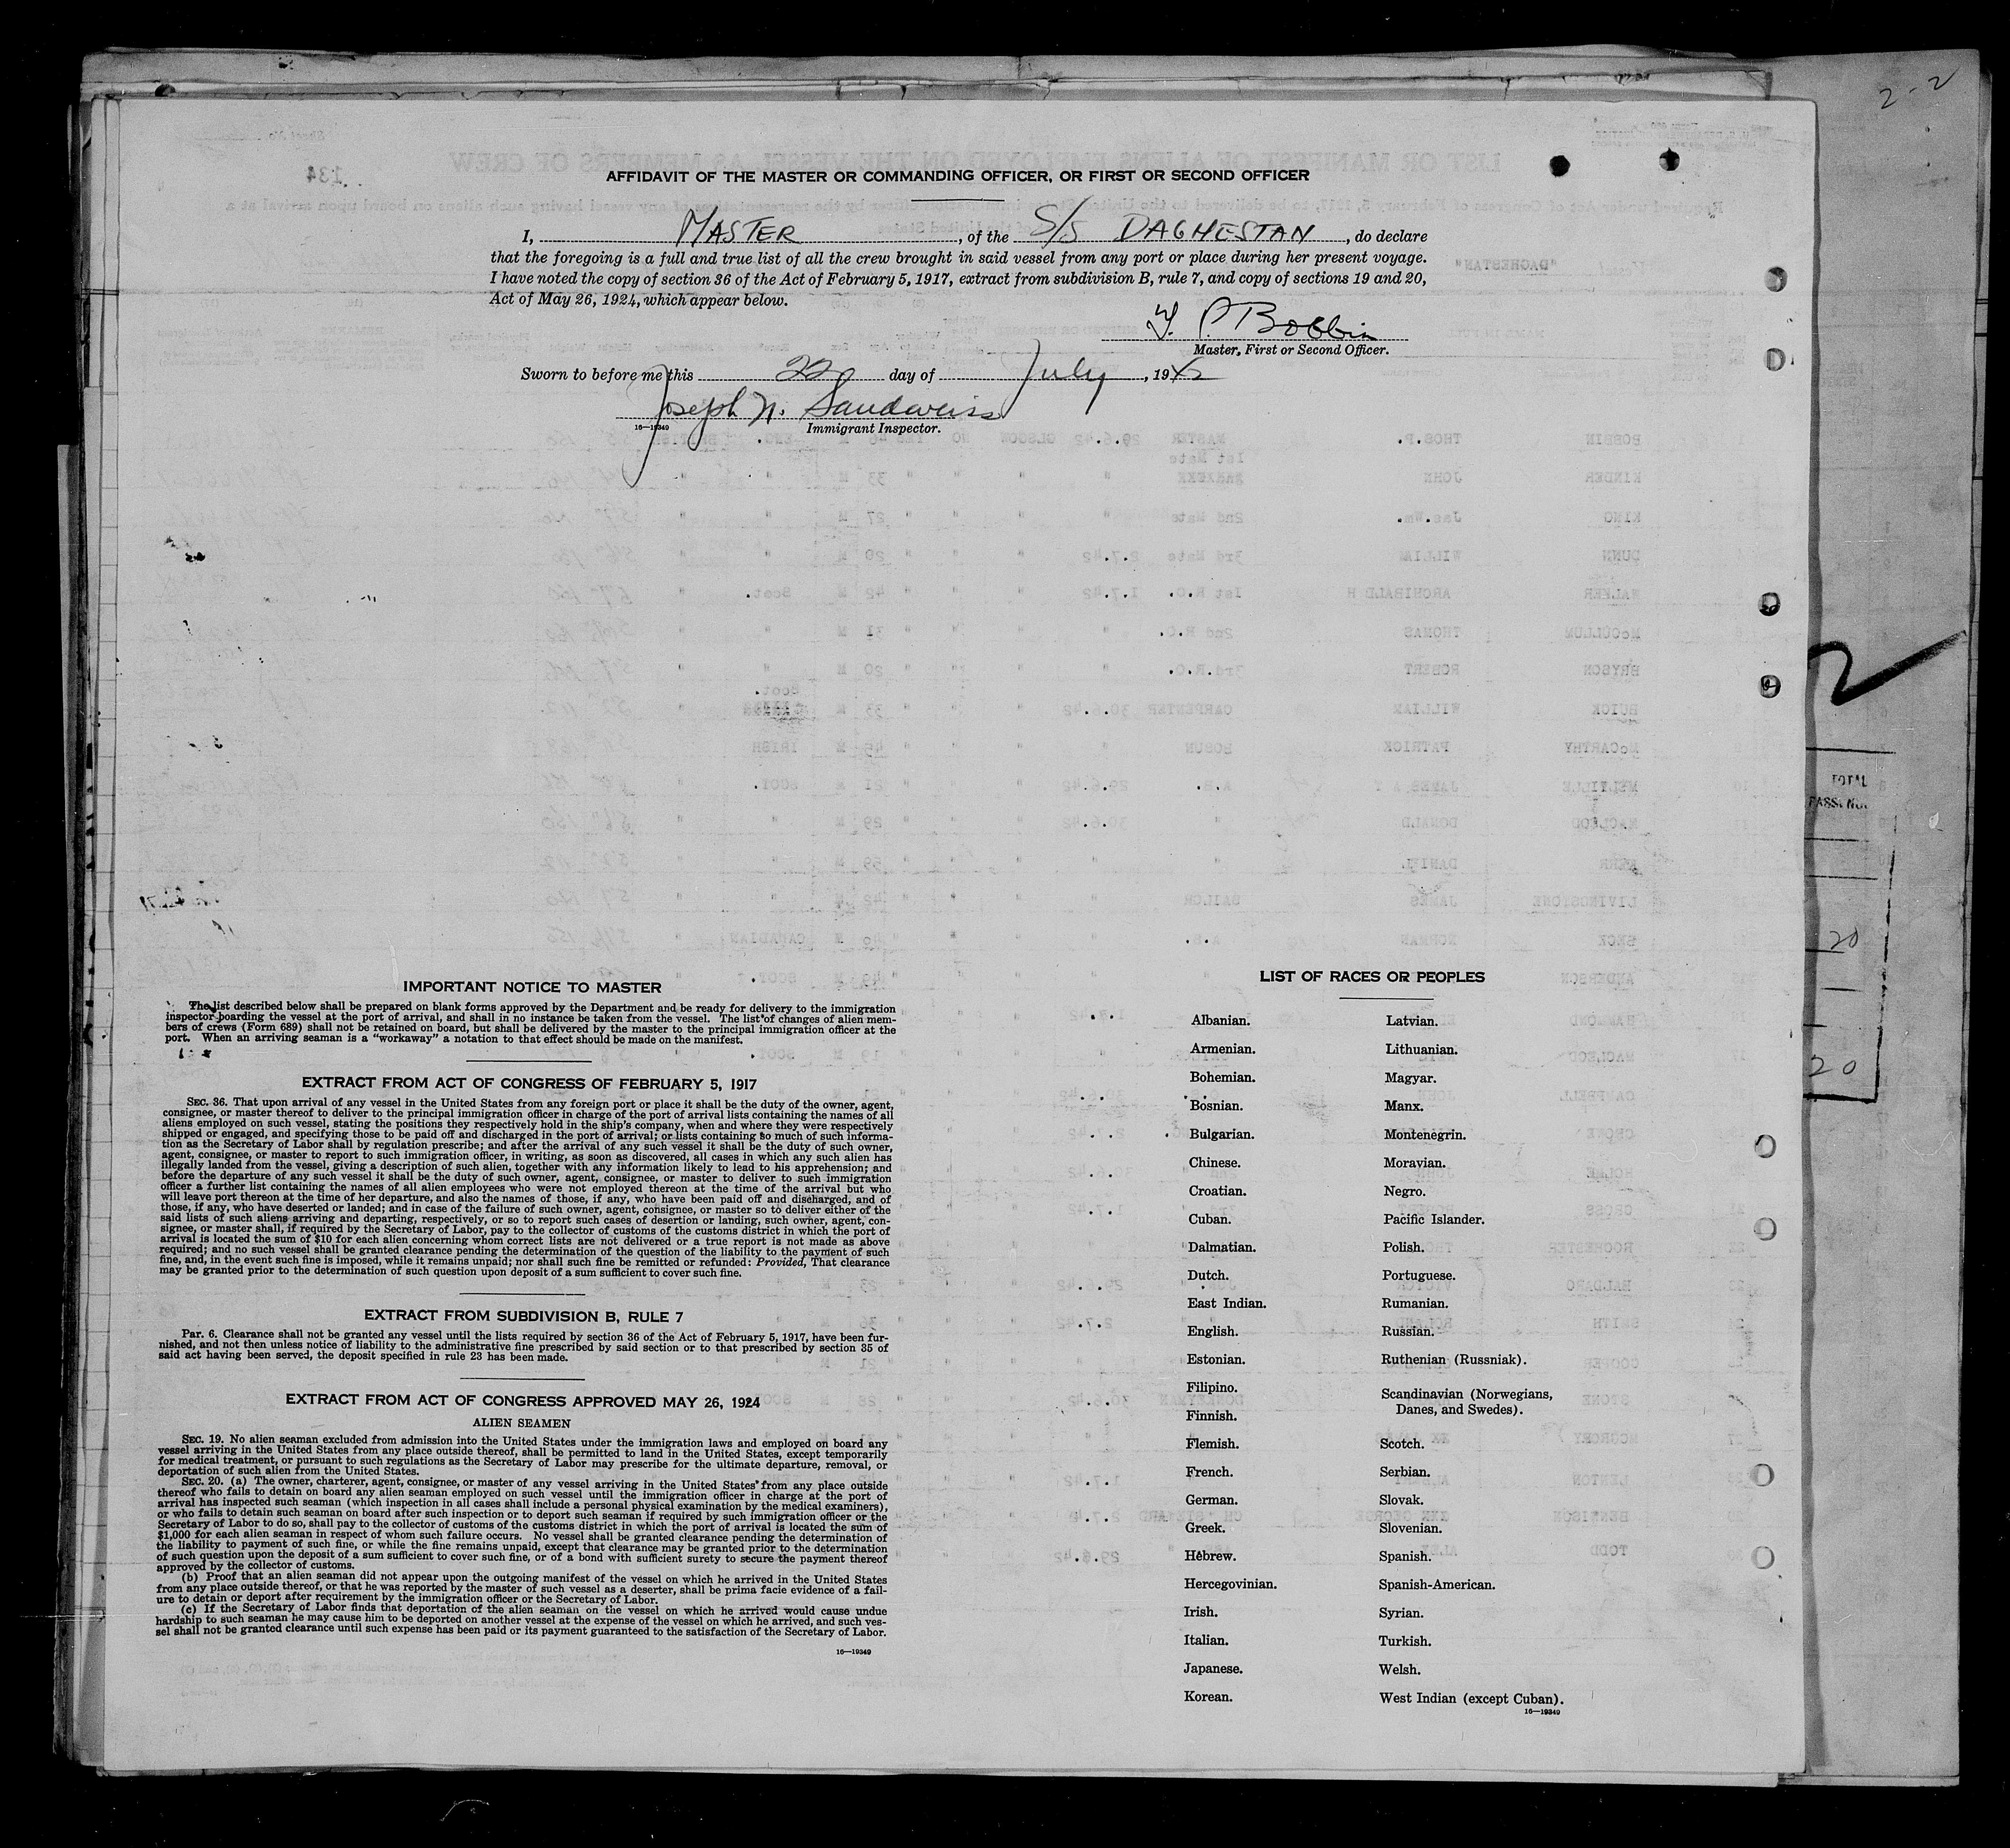 2-2
AFFIDAVIT OF THE MASTER OR COMMANDING OFFICER, OR FIRST OR SECOND OFFICER
I, MASTER, of the S/S DAGHESTAN, do declare
that the foregoing is a full and true list of all the crew brought in said vessel from any port or place during her present voyage.
I have noted the copy of section 36 of the Act of February 5, 1917, extract from subdivision B, rule 7, and copy of sections 19 and 20,
Act of May 26, 1924, which appear below.
T. P. Bobbin
Master, First or Second Officer.
Sworn to before me this 22 day of July, 1942
Joseph N. Sandweiss
16—19349
Immigrant Inspector.
TOTAL
PASSENG
20
20
IMPORTANT NOTICE TO MASTER
The list described below shall be prepared on blank forms approved by the Department and be ready for delivery to the immigration
inspector boarding the vessel at the port of arrival, and shall in no instance be taken from the vessel. The list of changes of alien mem-
bers of crews (Form 689) shall not be retained on board, but shall be delivered by the master to the principal immigration officer at the
port. When an arriving seaman is a "workaway" a notation to that effect should be made on the manifest.
EXTRACT FROM ACT OF CONGRESS OF FEBRUARY 5, 1917
SEC. 36. That upon arrival of any vessel in the United States from any foreign port or place it shall be the duty of the owner, agent,
consignee, or master thereof to deliver to the principal immigration officer in charge of the port of arrival lists containing the names of all
aliens employed on such vessel, stating the positions they respectively hold in the ship's company, when and where they were respectively
shipped or engaged, and specifying those to be paid off and discharged in the port of arrival; or lists containing so much of such informa-
tion as the Secretary of Labor shall by regulation prescribe; and after the arrival of any such vessel it shall be the duty of such owner,
agent, consignee, or master to report to such immigration officer, in writing, as soon as discovered, all cases in which any such alien has
illegally landed from the vessel, giving a description of such alien, together with any information likely to lead to his apprehension; and
before the departure of any such vessel it shall be the duty of such owner, agent, consignee, or master to deliver to such immigration
officer a further list containing the names of all alien employees who were not employed thereon at the time of the arrival but who
will leave port thereon at the time of her departure, and also the names of those, if any, who have been paid off and discharged, and of
those, if any, who have deserted or landed; and in case of the failure of such owner, agent, consignee, or master so to deliver either of the
said lists of such aliens arriving and departing, respectively, or so to report such cases of desertion or landing, such owner, agent, con-
signee, or master shall, if required by the Secretary of Labor, pay to the collector of customs of the customs district in which the port of
arrival is located the sum of $10 for each alien concerning whom correct lists are not delivered or a true report is not made as above
required; and no such vessel shall be granted clearance pending the determination of the question of the liability to the payment of such
fine, and, in the event such fine is imposed, while it remains unpaid; nor shall such fine be remitted or refunded: Provided, That clearance
may be granted prior to the determination of such question upon deposit of a sum sufficient to cover such fine.
EXTRACT FROM SUBDIVISION B, RULE 7
Par. 6. Clearance shall not be granted any vessel until the lists required by section 36 of the Act of February 5, 1917, have been fur-
nished, and not then unless notice of liability to the administrative fine prescribed by said section or to that prescribed by section 35 of
said act having been served, the deposit specified in rule 23 has been made.
EXTRACT FROM ACT OF CONGRESS APPROVED MAY 26, 1924
ALIEN SEAMEN
SEC. 19. No alien seaman excluded from admission into the United States under the immigration laws and employed on board any
vessel arriving in the United States from any place outside thereof, shall be permitted to land in the United States, except temporarily
for medical treatment, or pursuant to such regulations as the Secretary of Labor may prescribe for the ultimate departure, removal, or
deportation of such alien from the United States.
SEC. 20. (a) The owner, charterer, agent, consignee, or master of any vessel arriving in the United States from any place outside
thereof who fails to detain on board any alien seaman employed on such vessel until the immigration officer in charge at the port of
arrival has inspected such seaman (which inspection in all cases shall include a personal physical examination by the medical examiners),
or who fails to detain such seaman on board after such inspection or to deport such seaman if required by such immigration officer or the
Secretary of Labor to do so, shall pay to the collector of customs of the customs district in which the port of arrival is located the sum of
$1,000 for each alien seaman in respect of whom such failure occurs. No vessel shall be granted clearance pending the determination of
the liability to payment of such fine, or while the fine remains unpaid, except that clearance may be granted prior to the determination
of such question upon the deposit of a sum sufficient to cover such fine, or of a bond with sufficient surety to secure the payment thereof
approved by the collector of customs.
(b) Proof that an alien seaman did not appear upon the outgoing manifest of the vessel on which he arrived in the United States
from any place outside thereof, or that he was reported by the master of such vessel as a deserter, shall be prima facie evidence of a fail-
ure to detain or deport after requirement by the immigration officer or the Secretary of Labor.
(c) If the Secretary of Labor finds that deportation of the alien seaman on the vessel on which he arrived would cause undue
hardship to such seaman he may cause him to be deported on another vessel at the expense of the vessel on which he arrived, and such ves-
sel shall not be granted clearance until such expense has been paid or its payment guaranteed to the satisfaction of the Secretary of Labor.
16—19349
LIST OF RACES OR PEOPLES
Albanian.
Armenian.
Bohemian.
Bosnian.
Bulgarian.
Chinese.
Croatian.
Cuban.
Dalmatian.
Dutch.
East Indian.
English.
Estonian.
Filipino.
Finnish.
Flemish.
French.
German.
Greek.
Hebrew.
Hercegovinian.
Irish.
Italian.
Japanese.
Korean.
Latvian.
Lithuanian.
Magyar.
Manx.
Montenegrin.
Moravian.
Negro.
Pacific Islander.
Polish.
Portuguese.
Rumanian.
Russian.
Ruthenian (Russniak).
Scandinavian (Norwegians,
Danes, and Swedes).
Scotch.
Serbian.
Slovak.
Slovenian.
Spanish.
Spanish-American.
Syrian.
Turkish.
Welsh.
West Indian (except Cuban).
16—19349